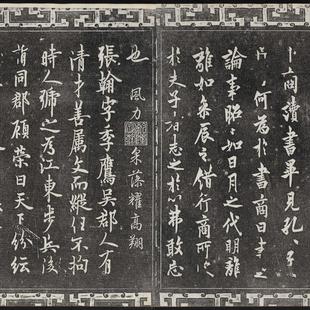 卜商讀書畢見孔々子々
問何為於書商曰書之
論事昭々如日月之代明離
離如參辰之錯行商所之
於夫子者志之於心弗敢忘
也
張翰字季鷹吳郡人有
清才善屬文而縱任不拘
時人號之為江東步兵後
謂同郡顧榮曰天下紛紜